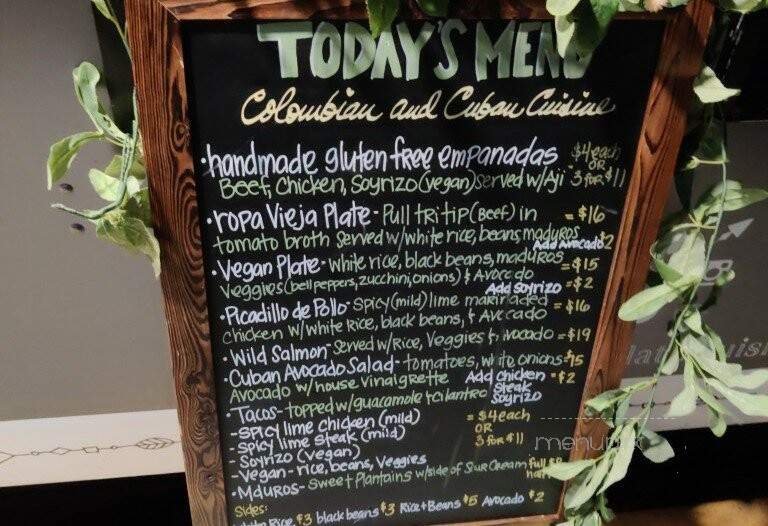 TODAY'S MENU
Colombian and Cuban Cuisine
·handmade gluten free empanadas $4 each
OR
Beef, Chicken, Soyrizo (vegan) served w/Aji 3 for $11
·ropa Vieja Plate - Pull tritip (Beef) in = $16
tomato broth served w/white rice, beans, maduros
Add Avocado $2
·Vegan Plate - white rice, black beans, maduros = $15
Veggies (bell peppers, zucchini, onions) & Avocado
Add Soyrizo = $2
·Picadillo de Pollo - spicy (mild) lime marinaded = $16
chicken w/white Rice, black beans, & Avocado
·Wild Salmon - served w/Rice, Veggies & Avocado = $19
·Cuban Avocado Salad - tomatoes, white onions $15
Avocado w/house vinaigrette Add chicken = $2
steak
soyrizo
·Tacos - topped w/guacamole & cilantro
- spicy lime chicken (mild) = $4 each
- spicy lime steak (mild) OR
- Soyrizo (vegan) 3 for $11
- Vegan - rice, beans, Veggies
·Maduros - sweet Plantains w/side of Sour Cream full
Sides:
Rice $3 black beans $3 Rice + Beans $5 Avocado $2